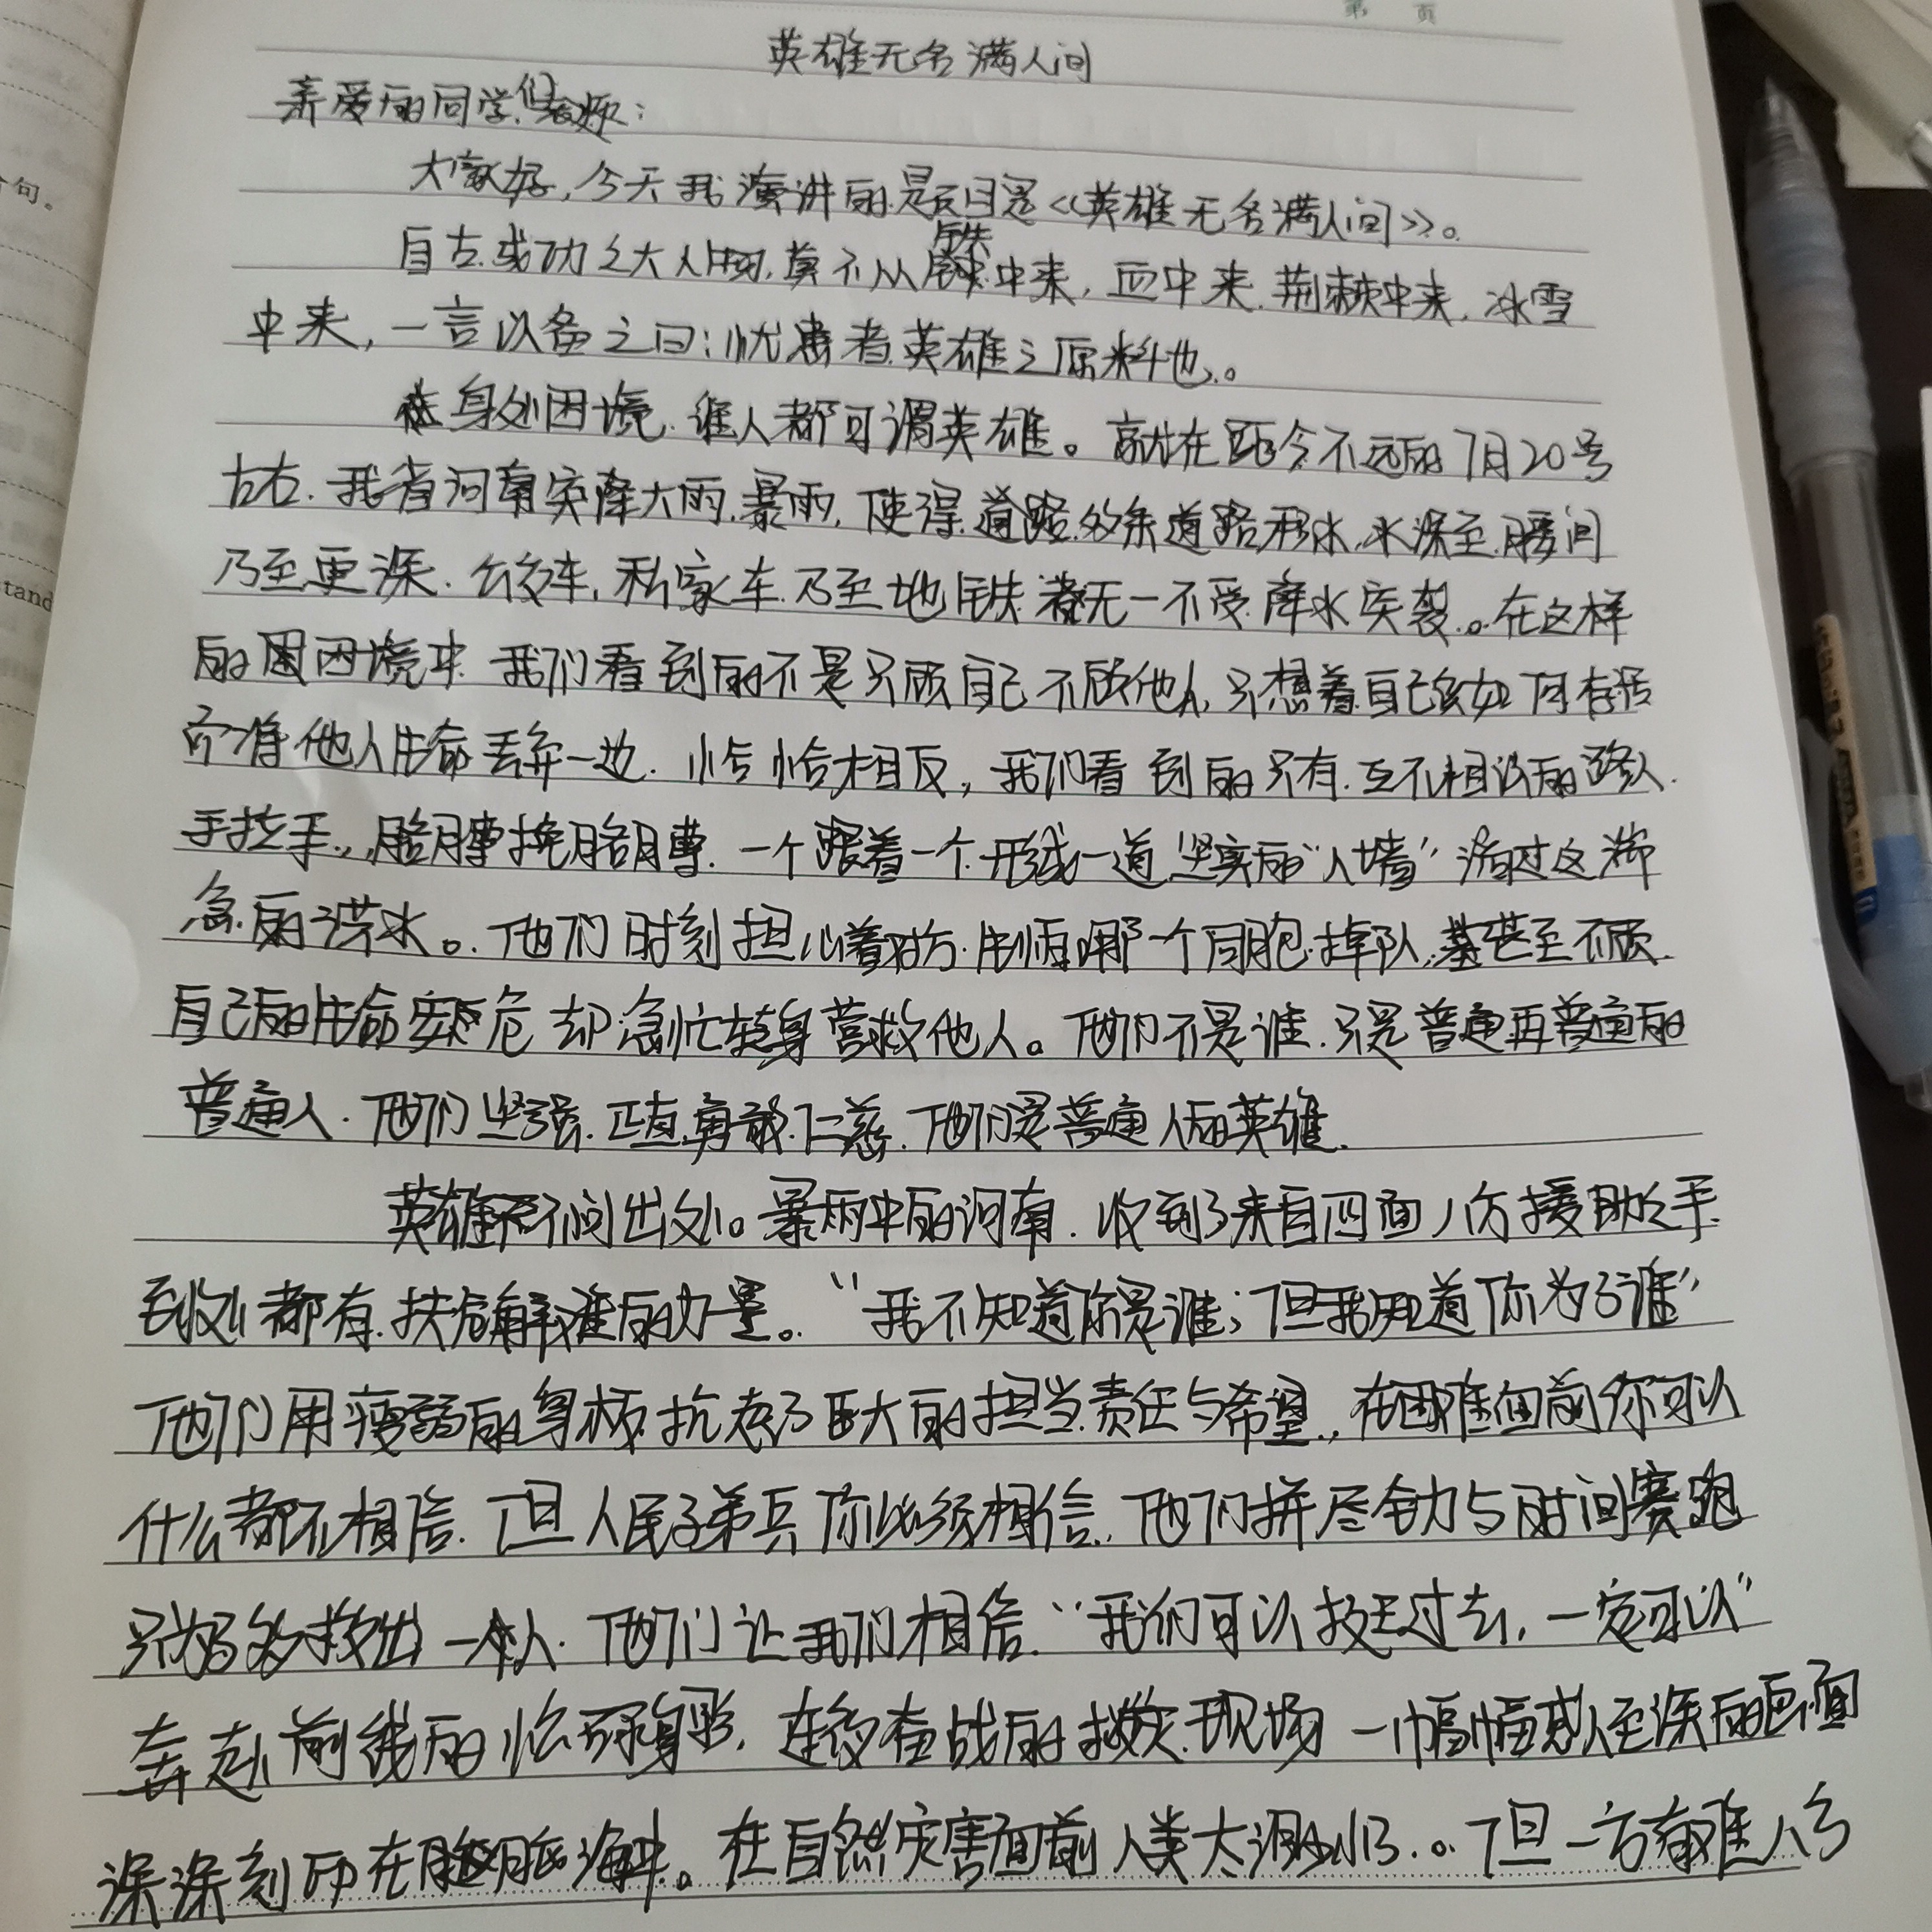 第 页
英雄无名满人间
亲爱的同学们、老师:
大家好,今天我演讲的题目是《英雄无名满人间》。
自古成功之大人物,莫不从铁中来,血中来,荆棘中来,冰雪
中来,一言以备之曰:忧患者,英雄之原料也。
身处困境,谁人都可谓英雄。就在距今不远的7月20号
左右,我省河南突降大雨,暴雨,使得道路多条道路积水,水深至腰间
乃至更深,公交车,私家车乃至地铁都无一不受降水突袭。在这样
的困境中,我们看到的不是只顾自己不顾他人,只想着自己如何存活
而将他人生命丢弃一边,恰恰相反,我们看到的只有互不相识的路人
手拉手,胳膊挽胳膊,一个跟着一个形成一道坚实的“人墙”淌过这湍
急的洪水。他们时刻担心着对方,生怕哪一个同胞掉队,甚至不顾
自己的生命安危却急忙转身营救他人。他们不是谁,只是普通再普通的
普通人,他们坚强,正直,勇敢,仁慈,他们是普通人的英雄。
英雄不问出处。暴雨中的河南,收到了来自四面八方援助之手
到处都有扶危解难的力量。“我不知道你是谁;但我知道你为了谁”
他们用瘦弱的身板抗起了巨大的担当,责任与希望,在困难面前你可以
什么都不相信,但人民子弟兵你必须相信,他们拼尽全力与时间赛跑
只为多救出一个人,他们让我们相信,“我们可以挺过去,一定可以”
奔赴前线的身影,连夜奋战的救灾现场一幅幅感人至深的画面
深深刻印在脑海中。在自然灾害面前人类太渺小了。但一方有难八方
句。
tand